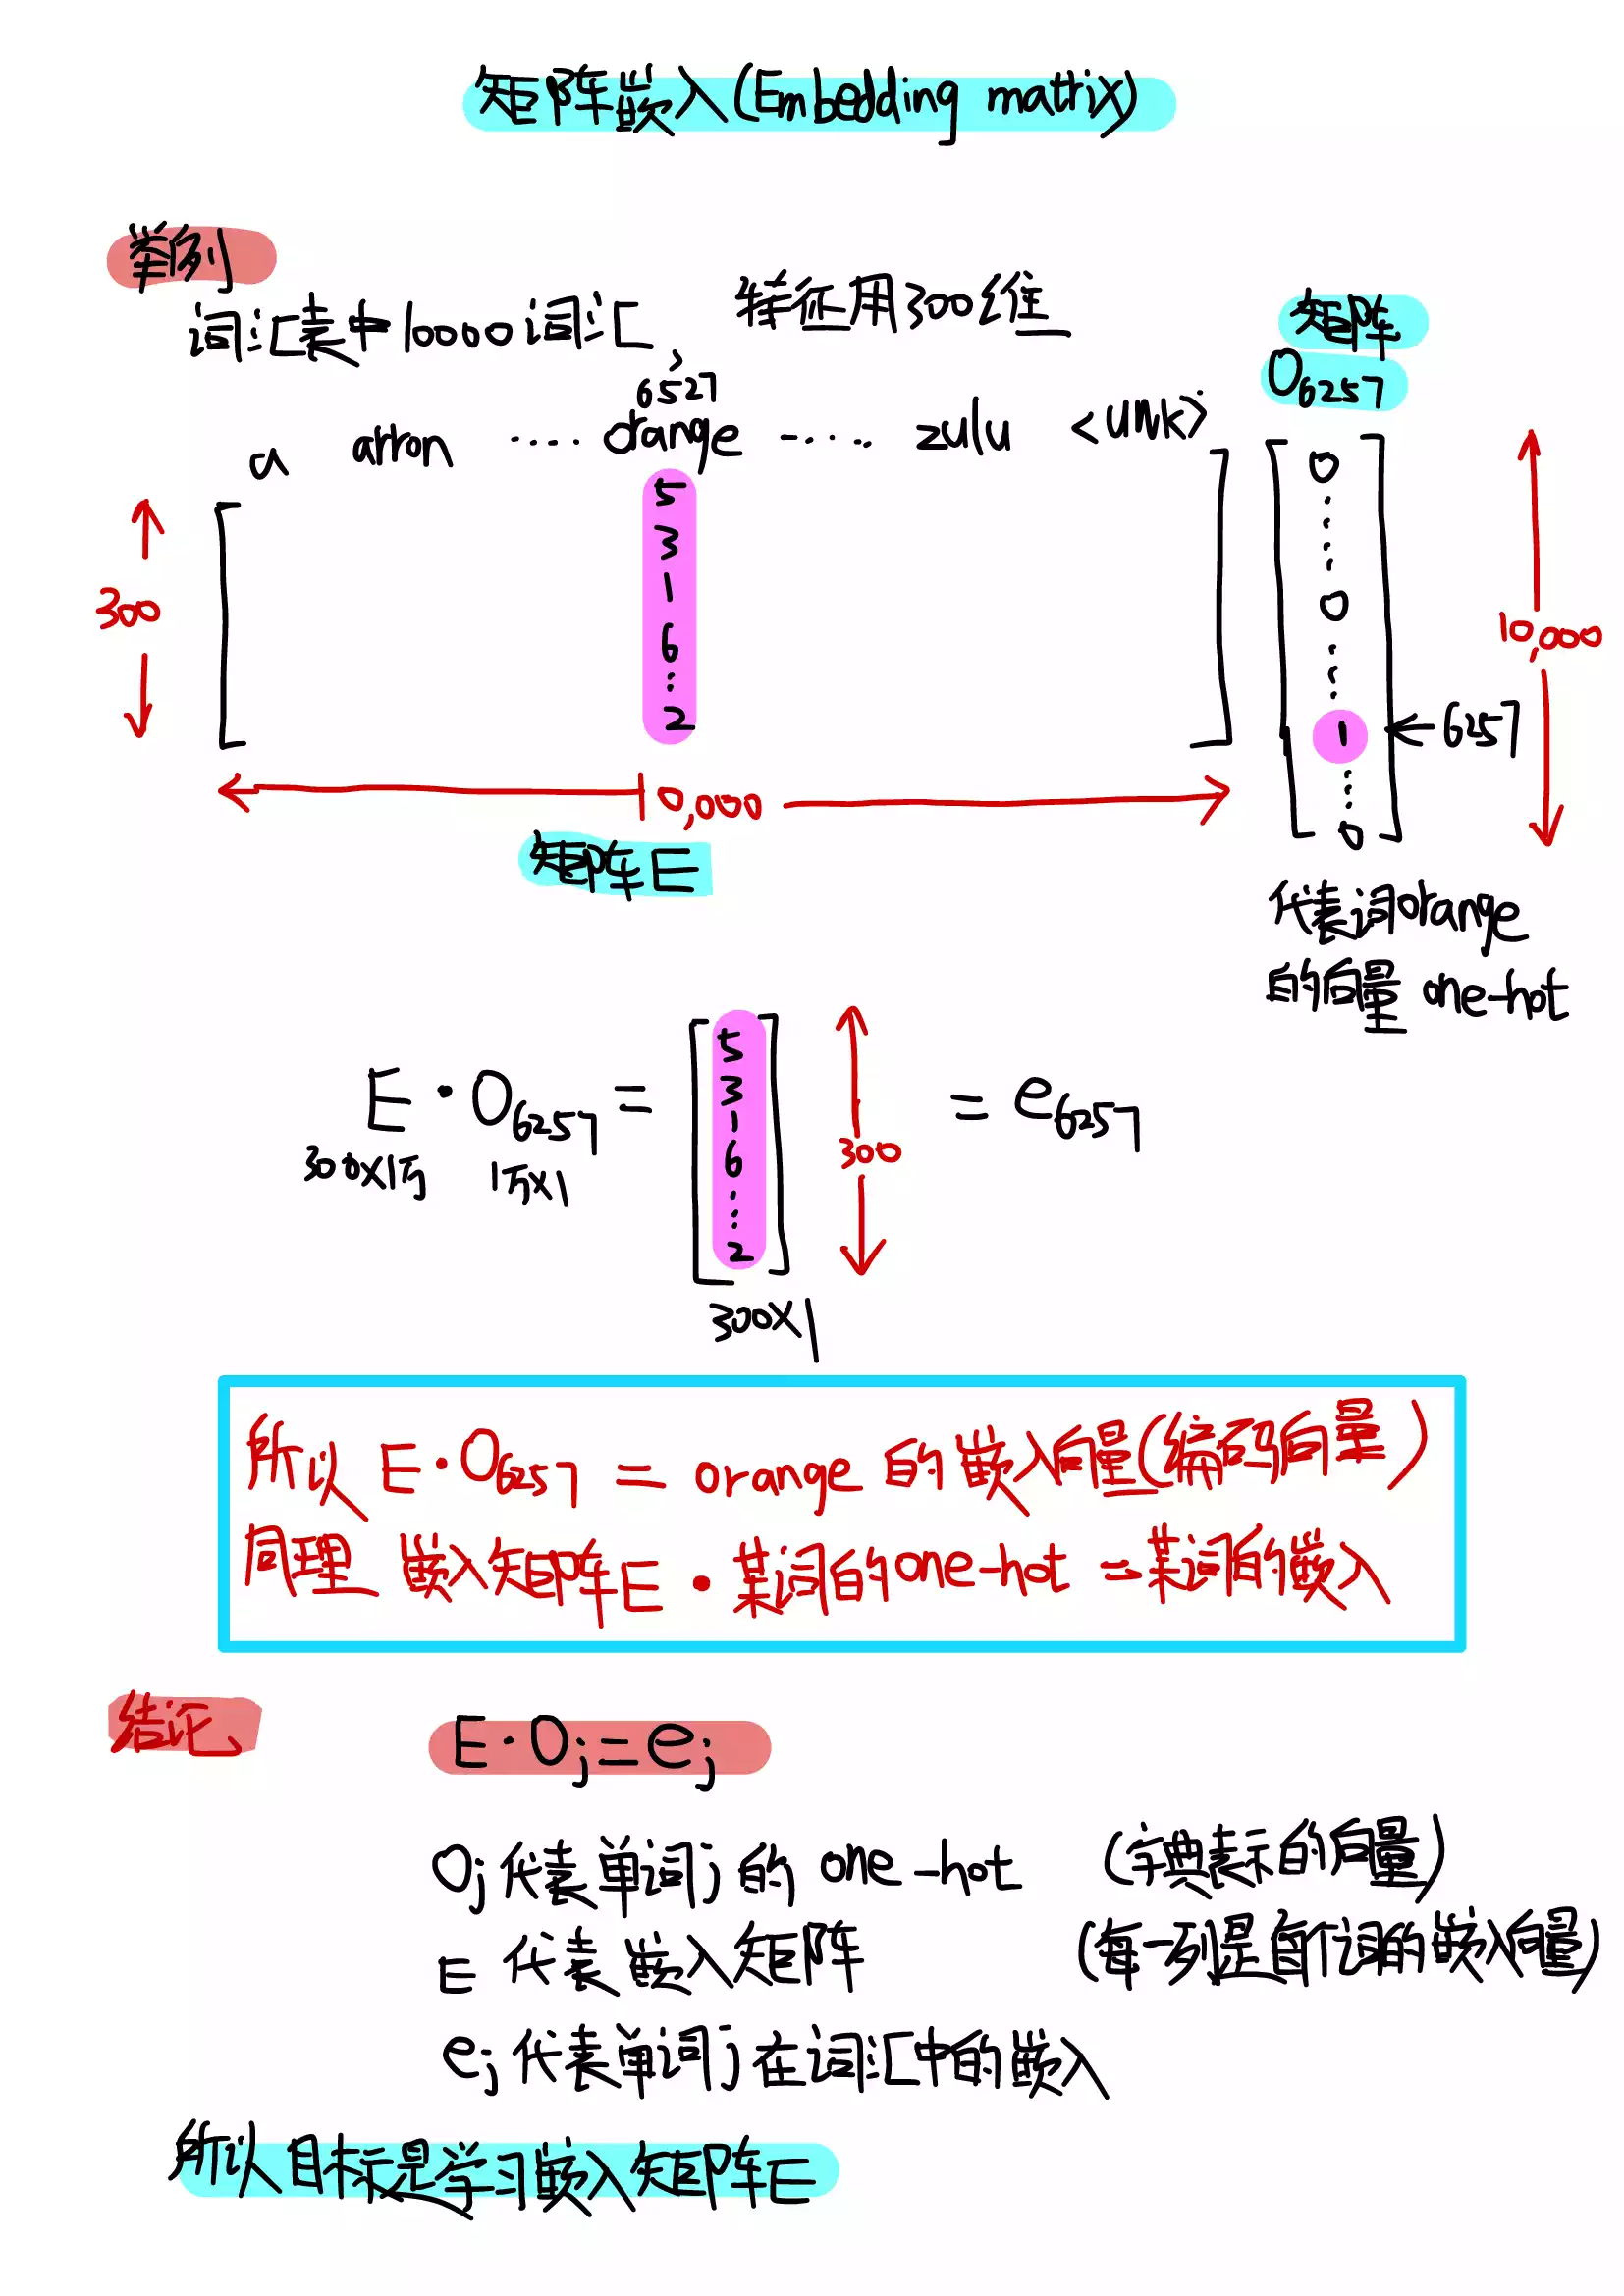 矩阵嵌入(Embedding matrix)
举列
词汇表中10000词汇, 特征用300维
矩阵
O6257
6527
a arron ···· orange ····· zulu <UNK>
5
3
1
6
⋮
2
300
10,000
矩阵E
0
⋮
0
⋮
1
⋮
0
←6257
10,000
代表词orange
的向量 one-hot
E · O6257 = [5 3 1 6 ⋮ 2] = e6257
300
300×1万 1万×1
300×1
所以 E·O6257 = orange 的嵌入向量(编码向量)
同理 嵌入矩阵E · 某词的one-hot = 某词的嵌入
结论
E·Oj=ej
Oj代表单词j的 one-hot (字典表示的向量)
E 代表嵌入矩阵 (每一列是每个词的嵌入向量)
ej代表单词j在词汇中的嵌入
所以目标是学习嵌入矩阵E